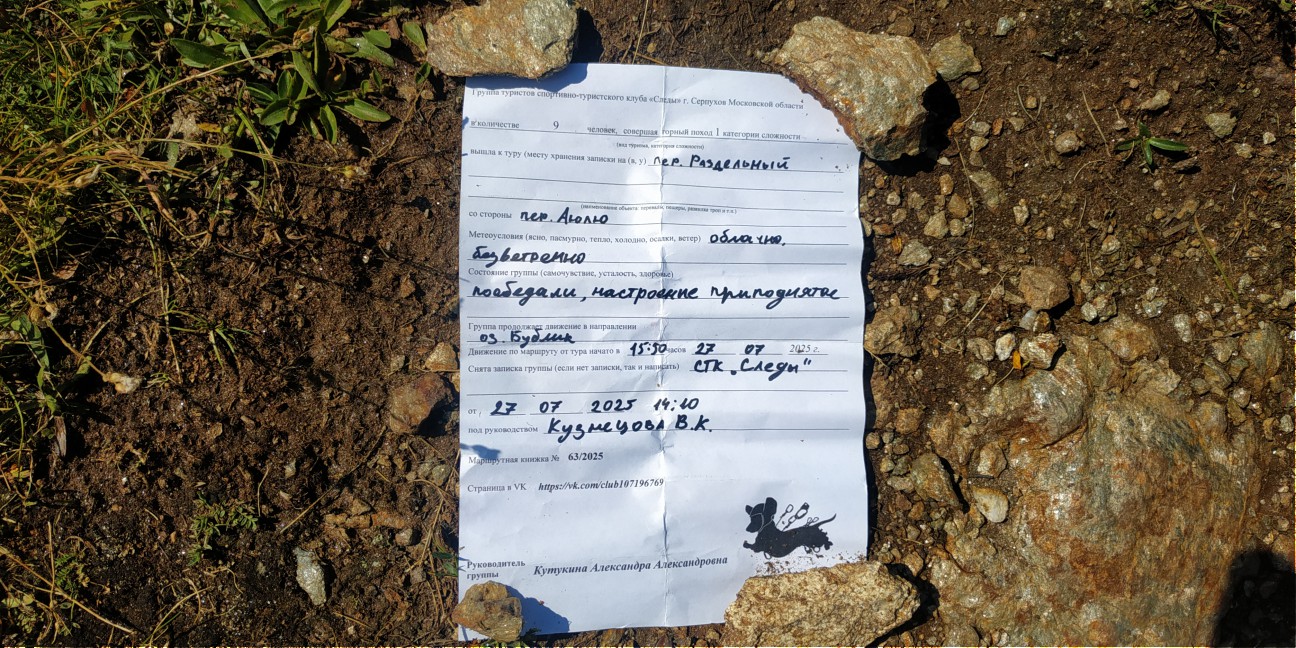 Группа туристов спортивно-туристского клуба «Следы» г. Серпухов Московской области
в количестве 9 человек, совершая горный поход 1 категории сложности
(вид туризма, категория сложности)
вышла к туру (месту хранения записки на (в, у) пер. Раздельный
(наименование объекта: перевала, пещеры, развилки троп и т.п.)
со стороны пер. Аюлю
Метеоусловия (ясно, пасмурно, тепло, холодно, осадки, ветер) облачно,
безветренно
Состояние группы (самочувствие, усталость, здоровье)
пообедали, настроение приподнятое
Группа продолжает движение в направлении
оз. Бублик
Движение по маршруту от тура начато в 15:50 часов 27 07 2025 г.
Снята записка группы (если нет записки, так и написать) СТК „Следы"
от 27 07 2025 14:10
под руководством Кузнецова В.К.
Маршрутная книжка № 63/2025
Страница в VK https://vk.com/club107196769
Руководитель
группы Кутукина Александра Александровна